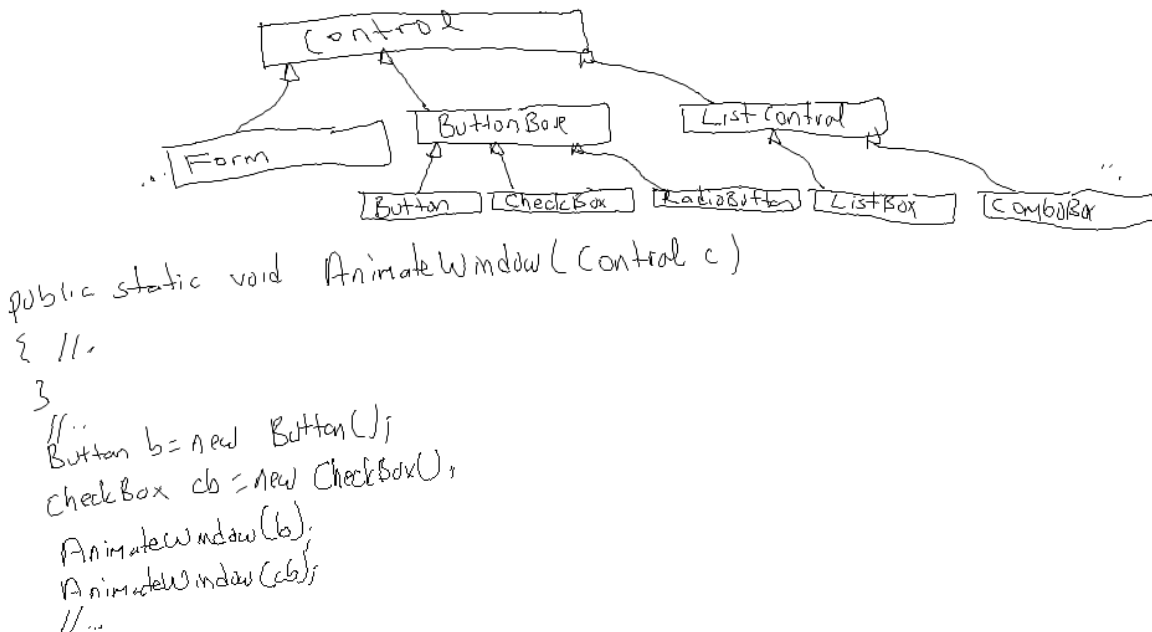 Control
Form
ButtonBase
ListControl
...
Button
CheckBox
RadioButton
ListBox
ComboBox
...
public static void AnimateWindow(Control c)
{ //.
}
//..
Button b=new Button();
CheckBox cb=new CheckBox();
AnimateWindow(b);
AnimateWindow(cb);
//...